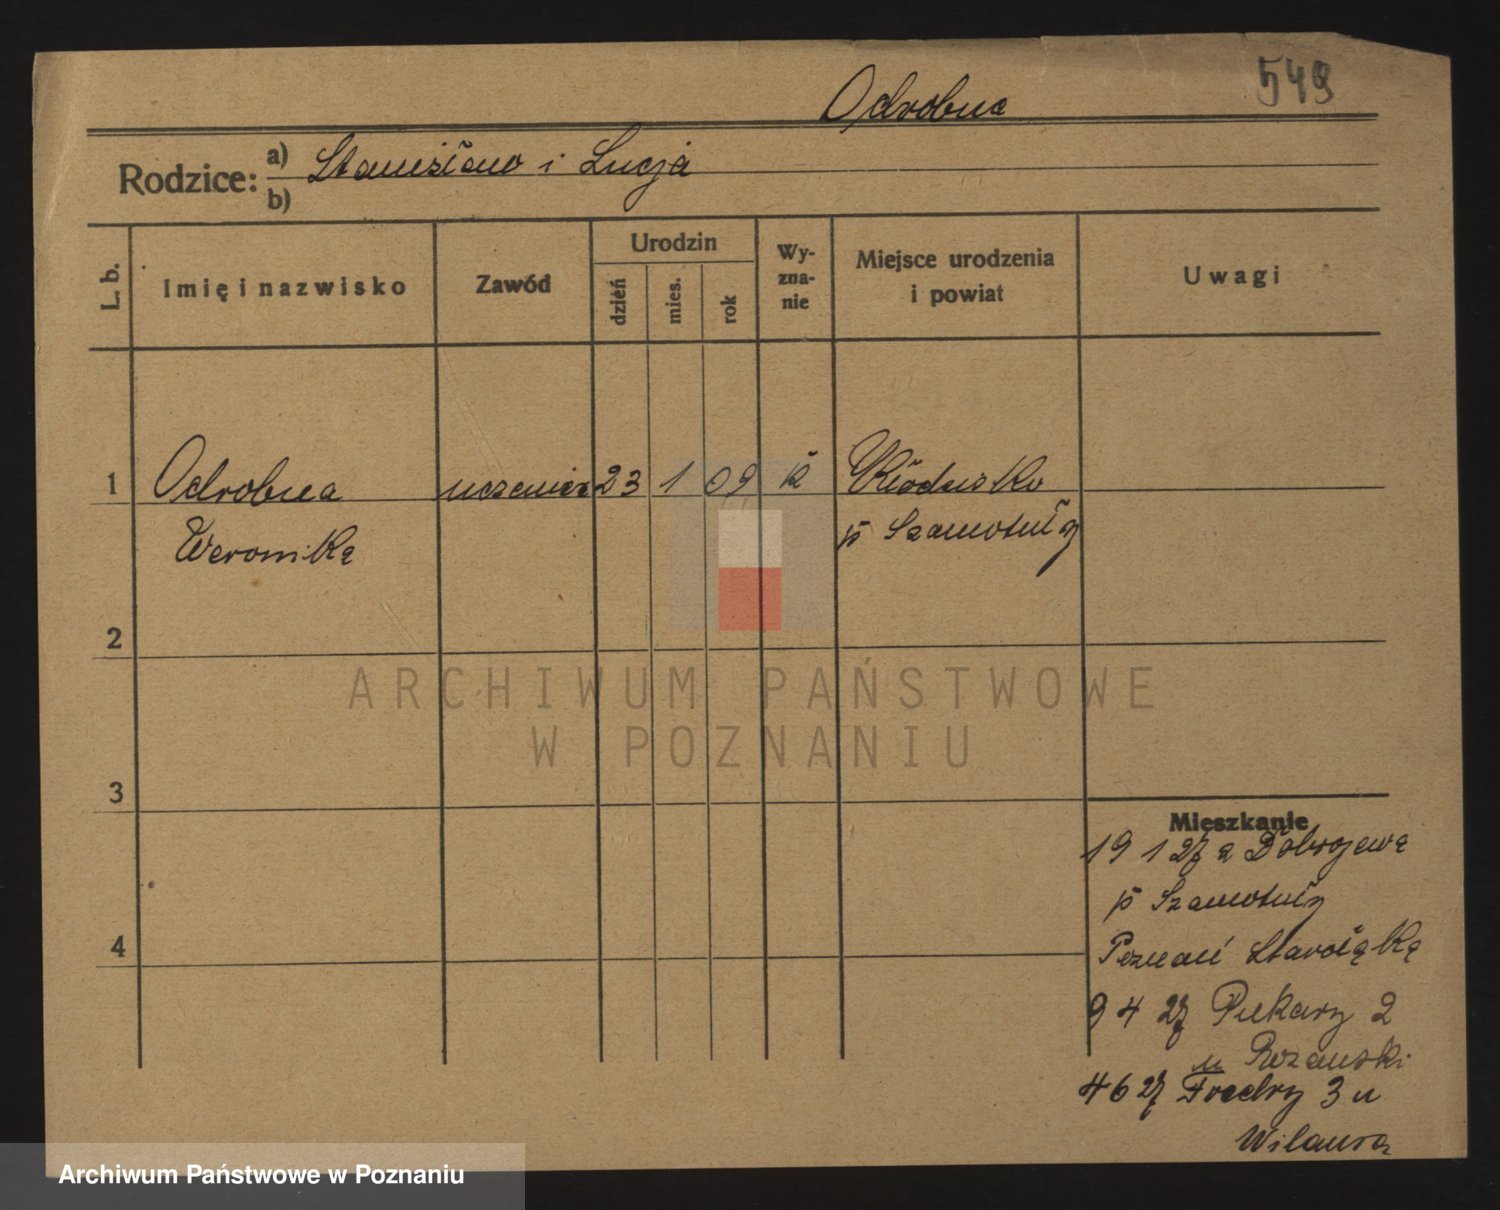 549
Odrobna
Rodzice: a) Stanisław i Łucja
b)
L. b.
Imię i nazwisko
Zawód
Urodzin
dzień
mies.
rok
Wy-
zna-
nie
Miejsce urodzenia
i powiat
Uwagi
1 Odrobna uczenica 23 1 09 k Kłodzisko
Weronika p Szamotuły
2
3
4
Mieszkanie
19 1 27 z Dobrojewa
p Szamotuły
Poznań Starołęka
9 4 27 Piekary 2
u
4 6 27 Fredry 3 u
ARCHIWUM PAŃSTWOWE
W POZNANIU
Archiwum Państwowe w Poznaniu